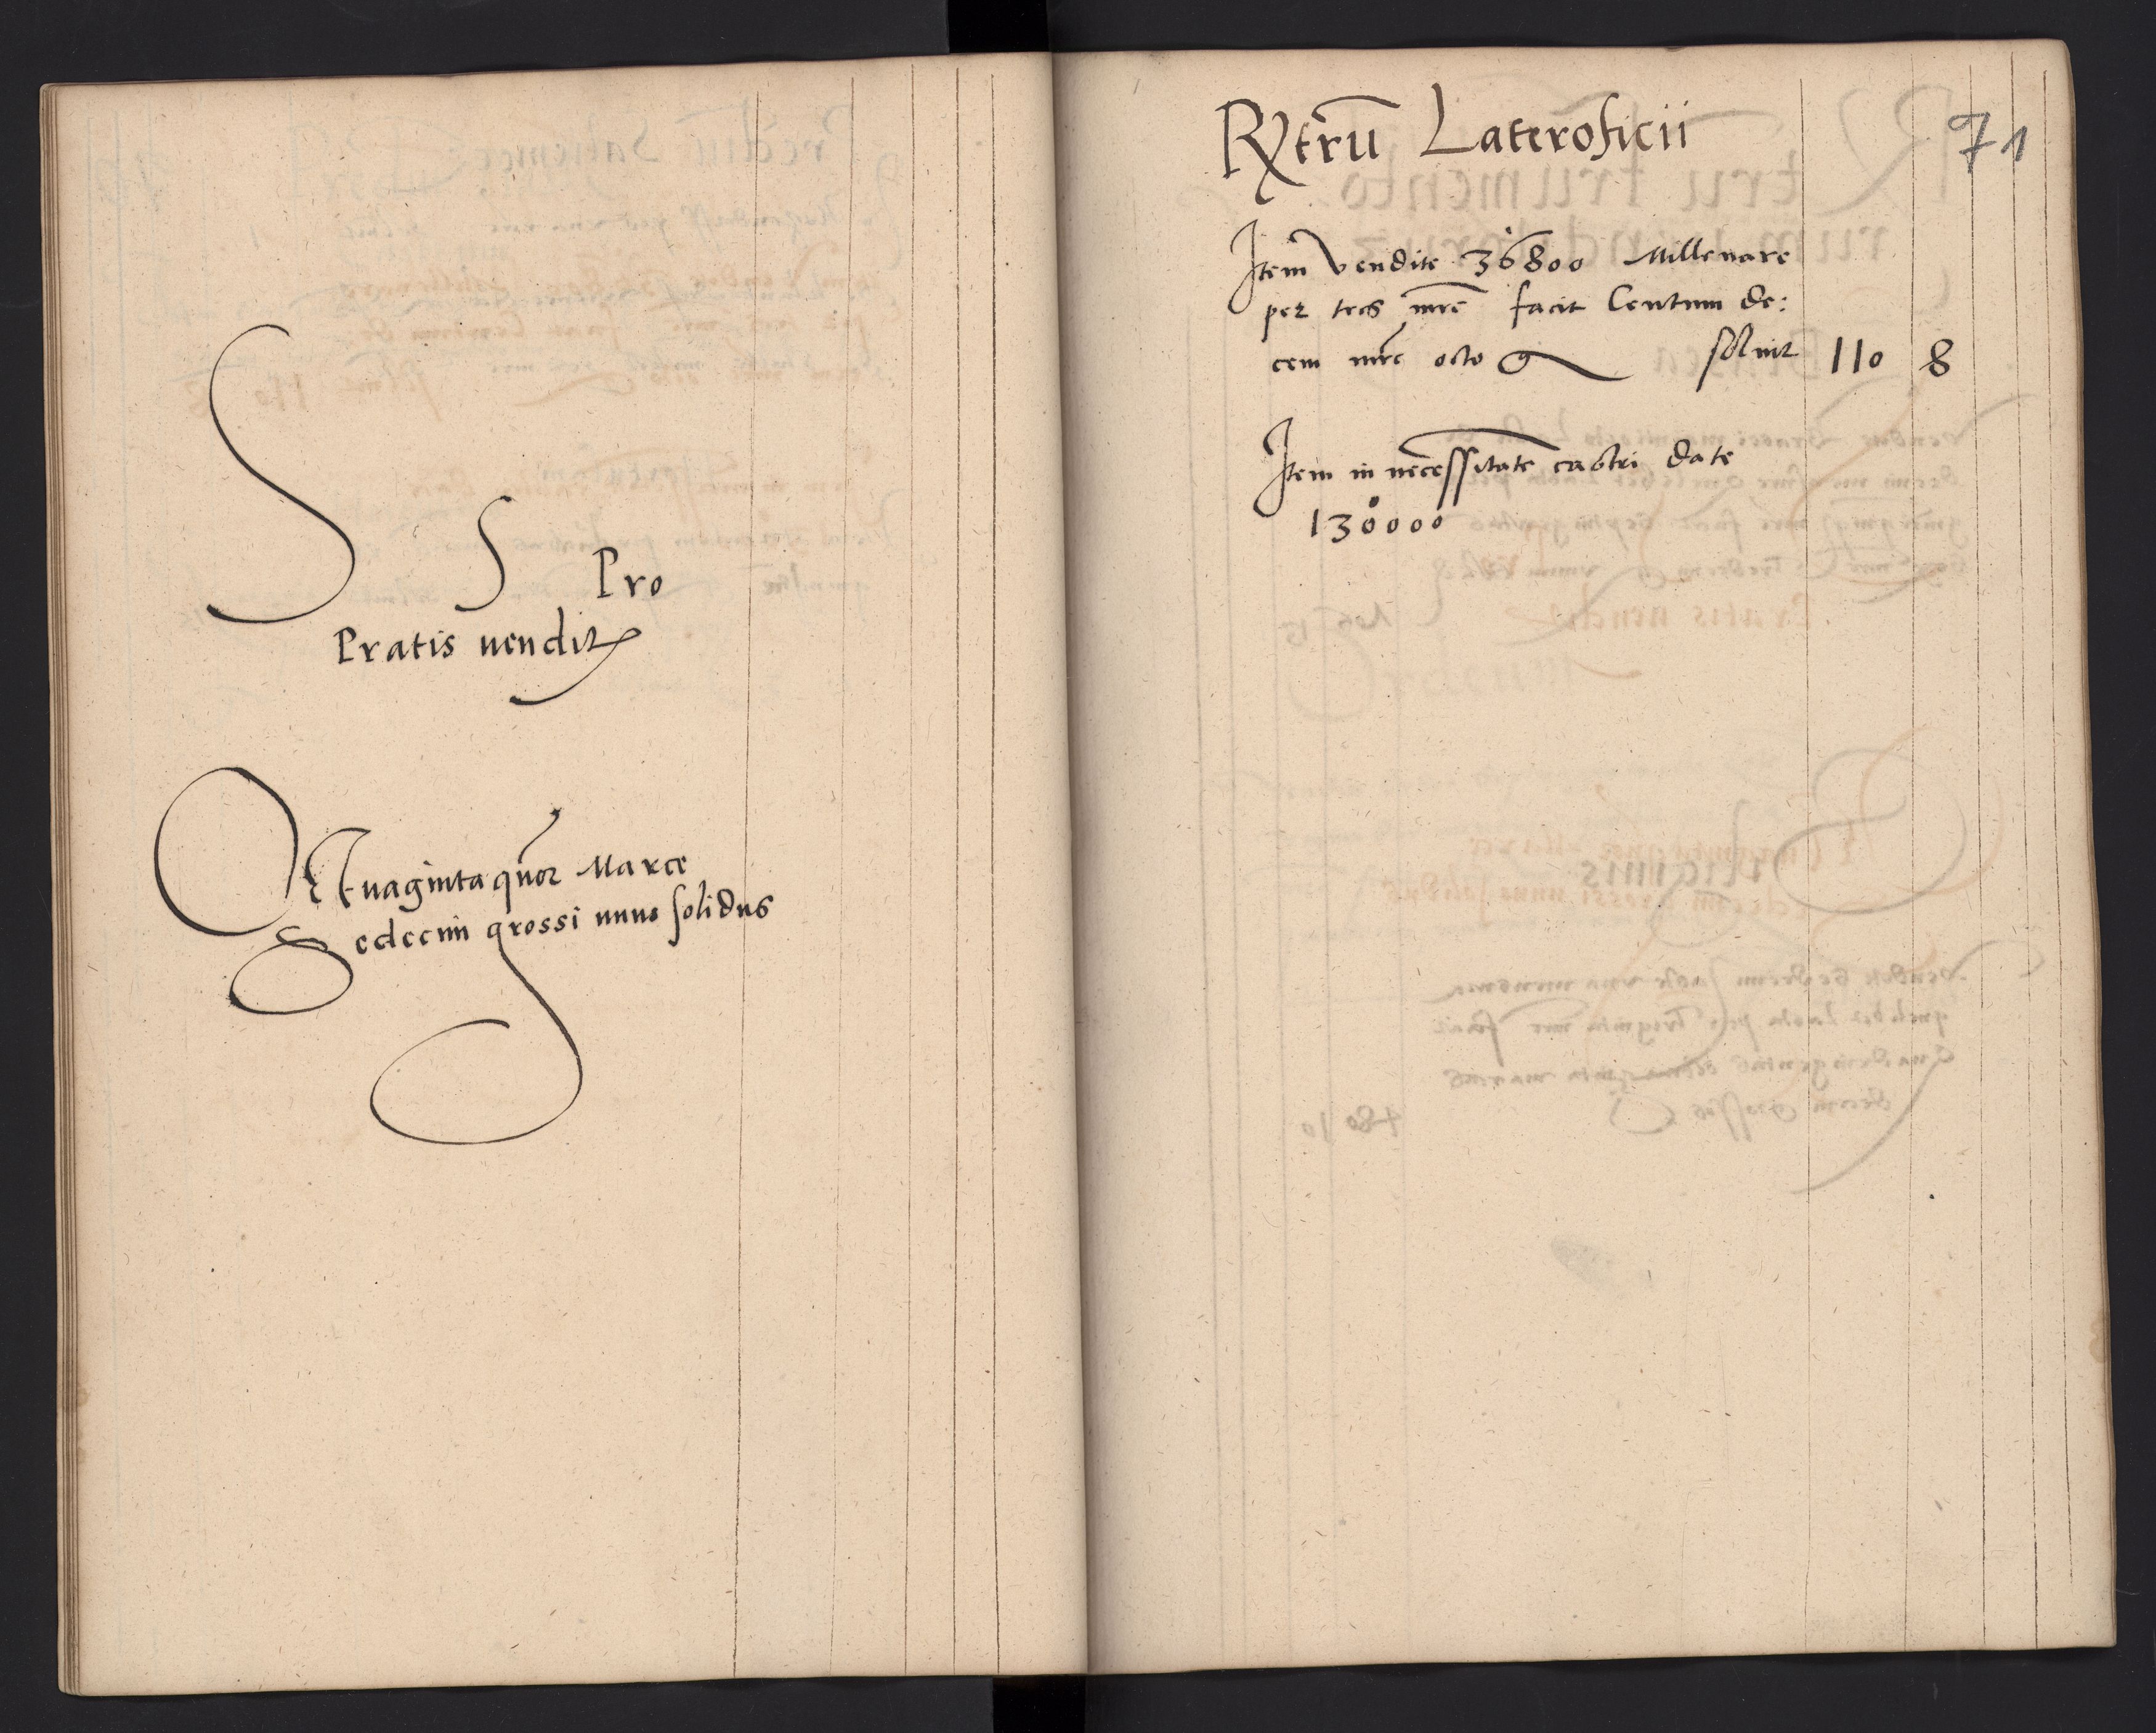 S S Pro
Pratis vendit
Quaginta quor Marce
Sedecim grossi unus solidus
71
Rx trū Lateroficii
Item Vendite 36800 Millenare
per tres mrc facit Centum de:
cem mrc octo g soluit 110 8
Item in necessitate castri date
130000